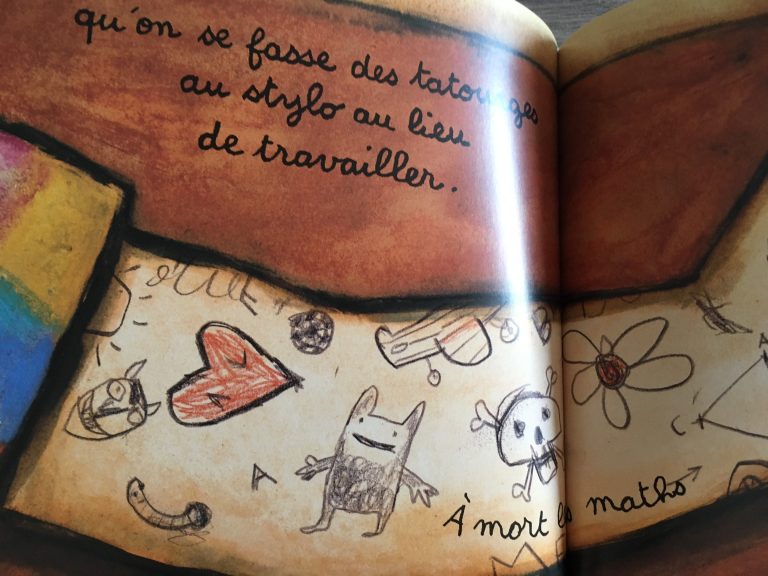 qu'on se fasse des tatouages
au stylo au lieu
de travailler.
A
A
C
À mort les maths